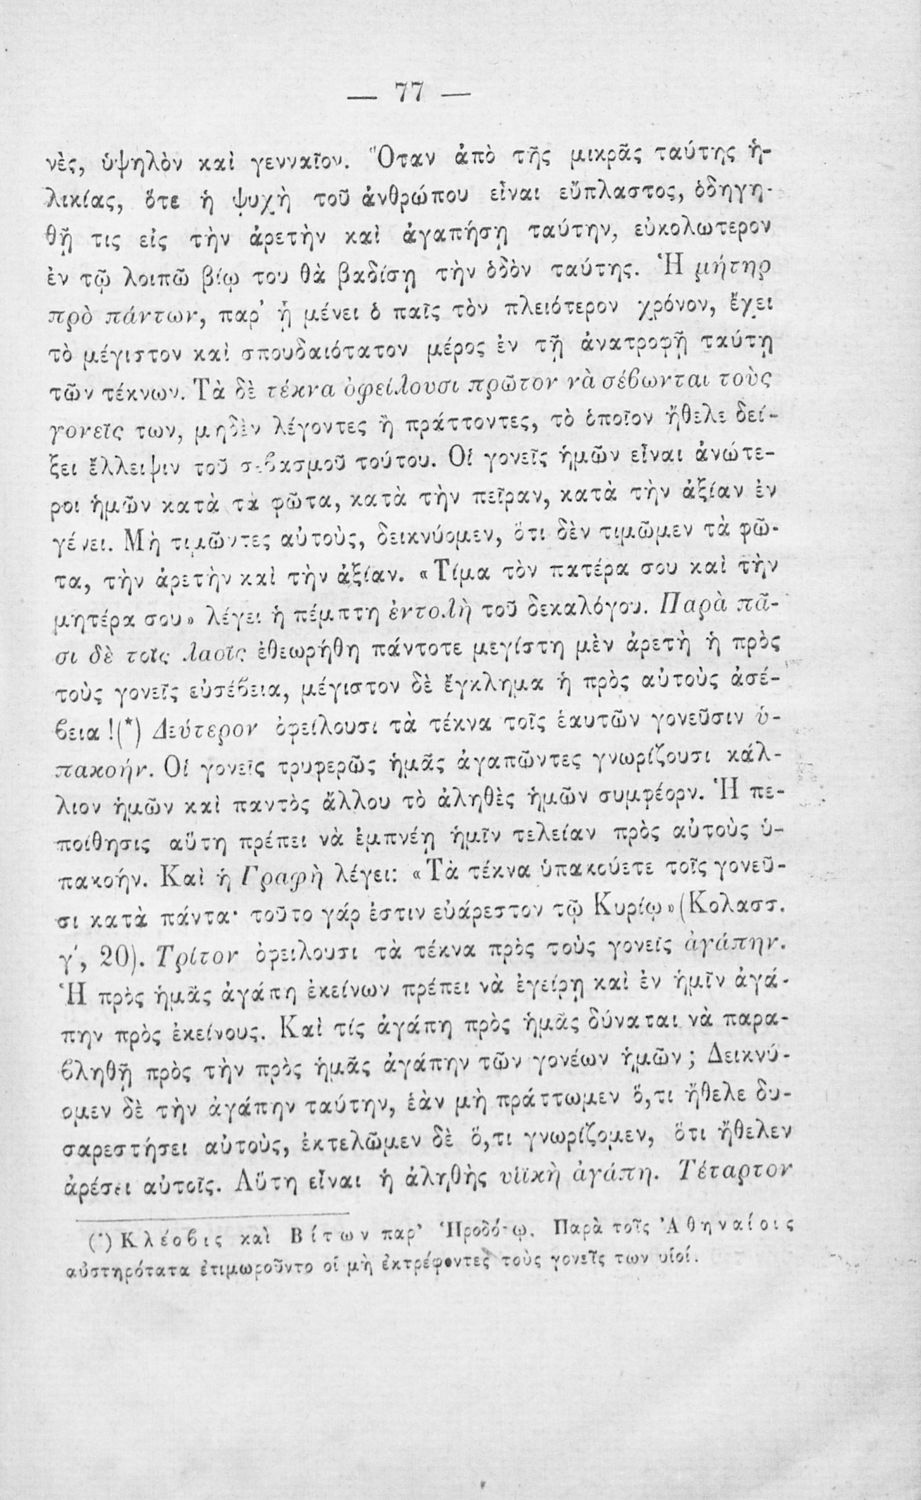 — 77 —
νὲς, ὑψηλὸν καὶ γενναῖον. Ὅταν ἀπὸ τῆς μικρᾶς ταύτης ἡ-
λικίας, ὅτε ἡ ψυχὴ τοῦ ἀνθρώπου εἶναι εὔπλαστος, ὁδηγη-
θῇ τις εἰς τὴν ἀρετὴν καὶ ἀγαπήσῃ ταύτην, εὐκολωτερον
ἐν τῷ λοιπῷ βίῳ του θὰ βαδίσῃ τὴν ὁδὸν ταύτης. Ἡ μήτηρ
πρὸ πάντων, παρ' ᾗ μένει ὁ παῖς τὸν πλειότερον χρόνον, ἔχει
τὸ μέγιστον καὶ σπουδαιότατον μέρος ἐν τῇ ἀνατροφῇ ταύτῃ
τῶν τέκνων. Τὰ δὲ τέκνα ὀφείλουσι πρῶτον νὰ σέβωνται τοὺς
γονεῖς των, μηδὲν λέγοντες ἢ πράττοντες, τὸ ὁποῖον ἤθελε δεί-
ξει ἔλλειψιν τοῦ σεβασμοῦ τούτου. Οἱ γονεῖς ἡμῶν εἶναι ἀνώτε-
ροι ἡμῶν κατὰ τὰ φῶτα, κατὰ τὴν πεῖραν, κατὰ τὴν ἀξίαν ἐν
γένει. Μὴ τιμῶντες αὐτοὺς, δεικνύομεν, ὅτι δὲν τιμῶμεν τὰ φῶ-
τα, τὴν ἀρετὴν καὶ τὴν ἀξίαν. «Τίμα τὸν πατέρα σου καὶ τὴν
μητέρα σου» λέγει ἡ πέμπτη ἐντολὴ τοῦ δεκαλόγου. Παρὰ πᾶ-
σι δὲ τοῖς λαοῖς ἐθεωρήθη πάντοτε μεγίστη μὲν ἀρετὴ ἡ πρὸς
τοὺς γονεῖς εὐσέβεια, μέγιστον δὲ ἔγκλημα ἡ πρὸς αὐτοὺς ἀσέ-
βεια!(*) Δεύτερον ὀφείλουσι τὰ τέκνα τοῖς ἑαυτῶν γονεῦσιν ὑ-
πακοήν. Οἱ γονεῖς τρυφερῶς ἡμᾶς ἀγαπῶντες γνωρίζουσι κάλ-
λιον ἡμῶν καὶ παντὸς ἄλλου τὸ ἀληθὲς ἡμῶν συμφέορν. Ἡ πε-
ποίθησις αὕτη πρέπει νὰ ἐμπνέῃ ἡμῖν τελείαν πρὸς αὐτοὺς ὑ-
πακοήν. Καὶ ἡ Γραφὴ λέγει: «Τὰ τέκνα ὑπακούετε τοῖς γονεῦ-
σι κατὰ πάντα· τοῦτο γάρ ἐστιν εὐάρεστον τῷ Κυρίῳ»(Κολασσ.
γ΄, 20). Τρίτον ὀφειλουσι τὰ τέκνα πρὸς τοὺς γονεῖς ἀγάπην.
Ἡ πρὸς ἡμᾶς ἀγάπη ἐκείνων πρέπει νὰ ἐγείρῃ καὶ ἐν ἡμῖν ἀγά-
πην πρὸς ἐκείνους. Καὶ τίς ἀγάπη πρὸς ἡμᾶς δύναται νὰ παρα-
βληθῇ πρὸς τὴν πρὸς ἡμᾶς ἀγάπην τῶν γονέων ἡμῶν; Δεικνύ-
ομεν δὲ τὴν ἀγάπην ταύτην, ἐὰν μὴ πράττωμεν ὅ,τι ἤθελε δυ-
σαρεστήσει αὐτοὺς, ἐκτελῶμεν δὲ ὅ,τι γνωρίζομεν, ὅτι ἤθελεν
ἀρέσει αὐτοῖς. Αὕτη εἶναι ἡ ἀληθὴς υἱϊκὴ ἀγάπη. Τέταρτον
(*) Κλέοβις καὶ Βίτων παρ' Ἡροδότῳ. Παρὰ τοῖς Ἀθηναίοις
αὐστηρότατα ἐτιμωροῦντο οἱ μὴ ἐκτρέφοντες τοὺς γονεῖς των υἱοί.